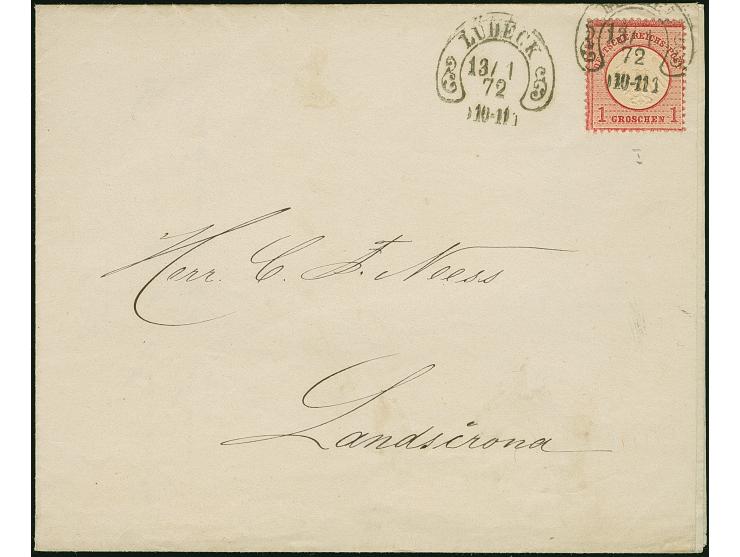 LÜBECK
13/1
72
10-11
13/1
72
10-11
DEUTSCHE REICHS-POST
1 GROSCHEN 1
Herr. C. F. Neess
Landscrona